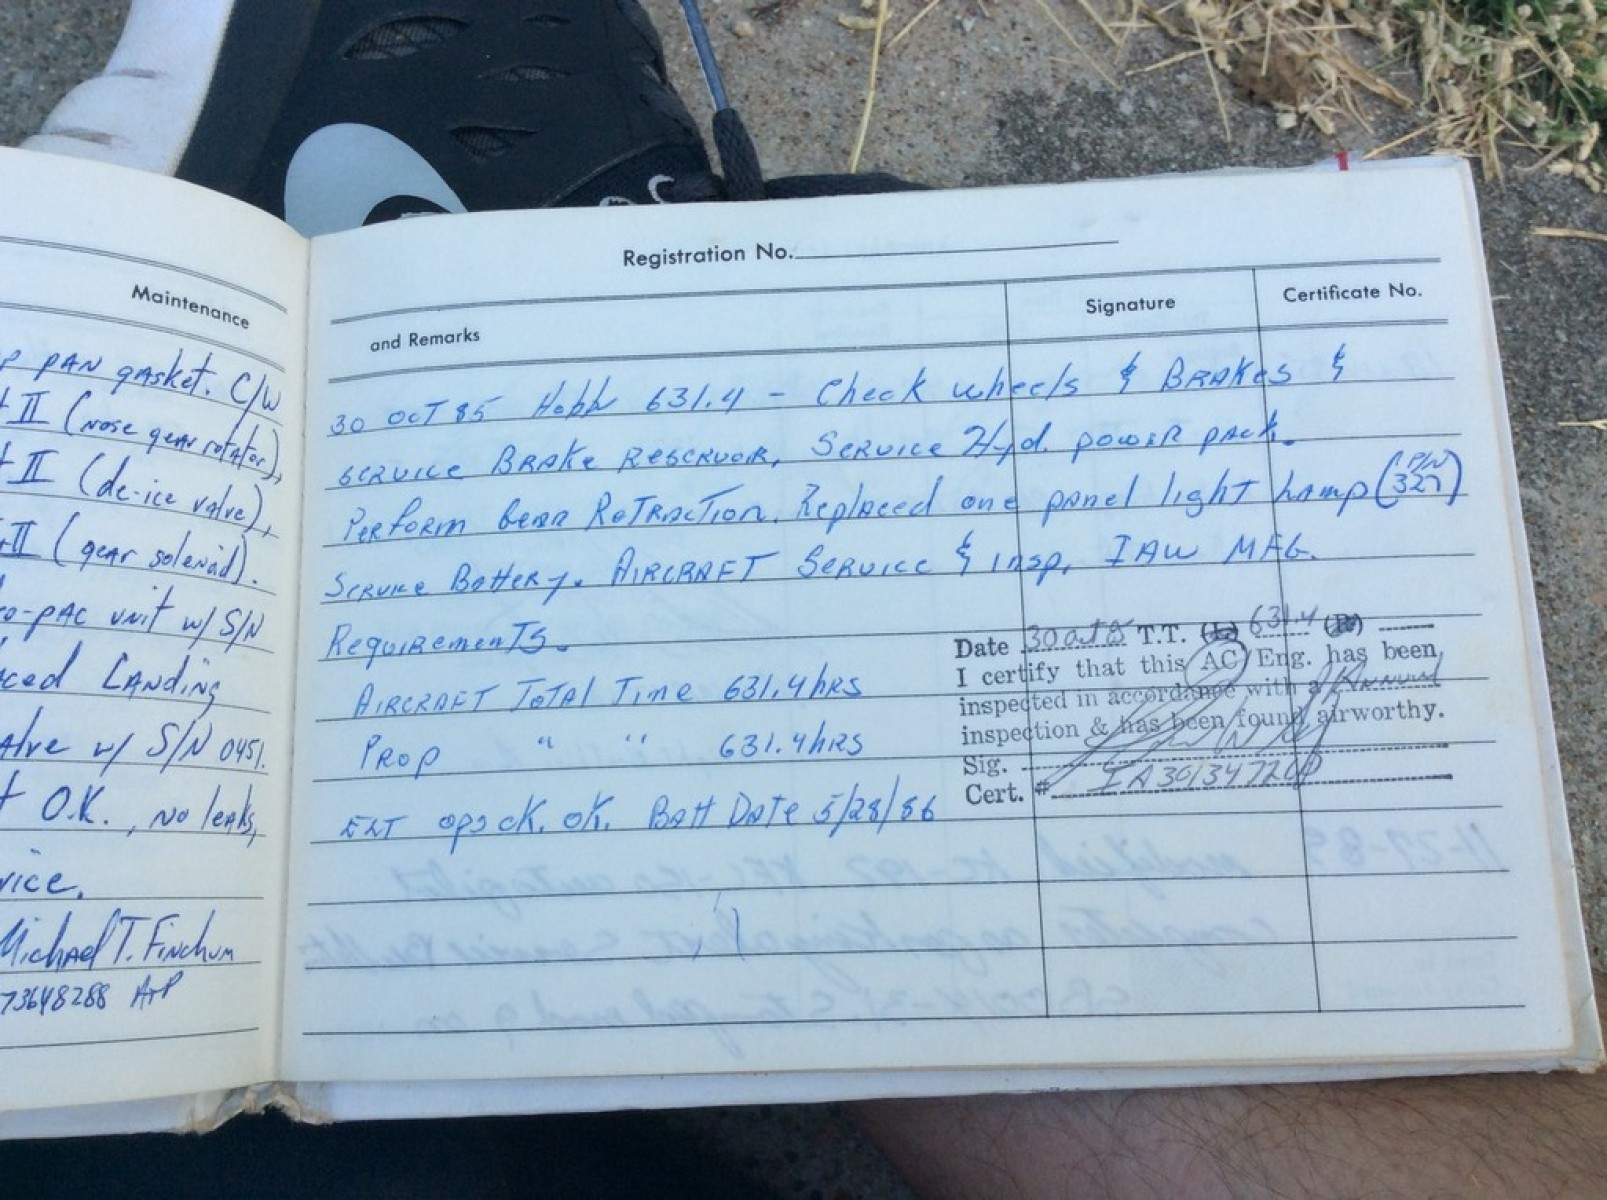 Maintenance
P PAN gasket. C/W
+ II (nose gear rotator),
+ II (de-ice valve),
II (gear solenoid).
o-PAC unit w/ S/N
ced Landing
alve w/ S/N 0451.
+ O.K., NO leaks,
vice.
Michael T. Finchum
73648288 A+P
Registration No.
and Remarks
Signature
Certificate No.
30 OCT 85 Hobb 631.4 - Check wheels & Brakes &
service Brake Reservoir, Service Hyd. power pack.
Perform Gear Retraction. Replaced one panel light Lamp (P/N 327)
Service Battery. Aircraft Service & insp, IAW MFG.
Requirements.
Aircraft Total Time 631.4 hrs
Prop " " 631.4 hrs
ELT ops ck. ok. Batt Date 5/28/86
Date 30 Oct 85 T.T. 631.4
I certify that this AC/Eng. has been
inspected in accordance with a Annual
inspection & has been found airworthy.
Sig.
Cert. # IA